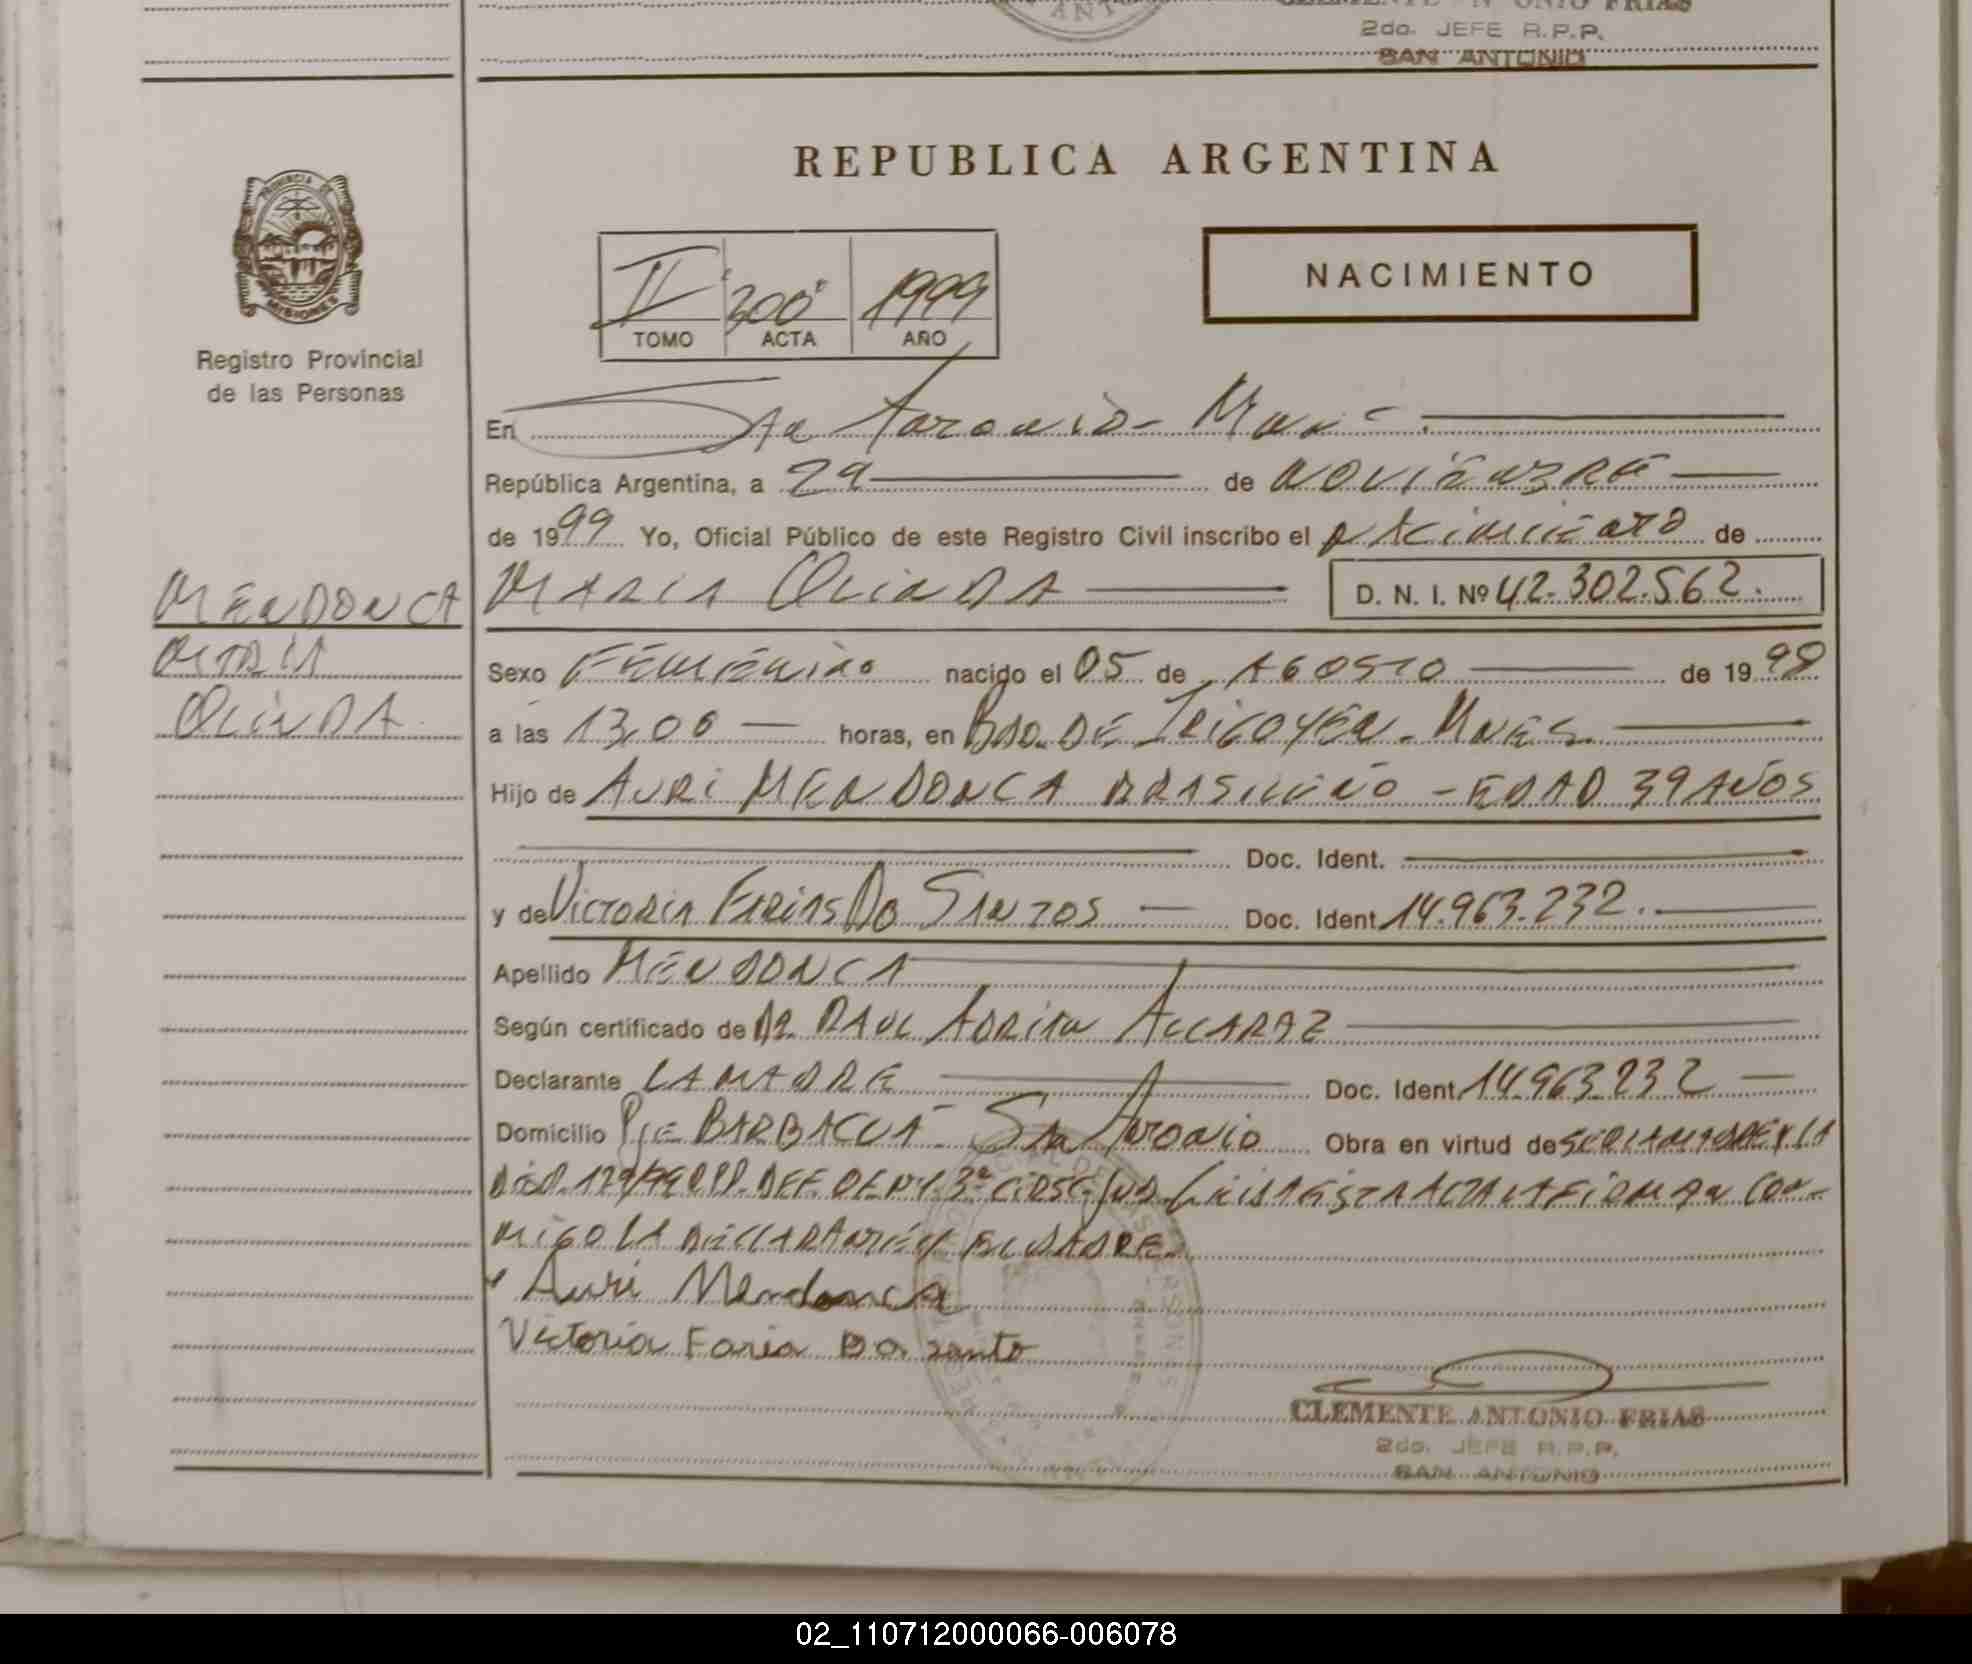 CLEMENTE ANTONIO FRIAS
2do. JEFE R.P.P.
SAN ANTONIO
REPUBLICA ARGENTINA
PROVINCIA DE
MISIONES
Registro Provincial
de las Personas
II "300" 1999
TOMO ACTA AÑO
NACIMIENTO
En San Antonio - Mnes.
República Argentina, a 29 de NOVIEMBRE
de 1999 Yo, Oficial Público de este Registro Civil inscribo el NACIMIENTO de
MARIA OLINDA D. N. I. Nº 42.302.562.
MENDONCA
MARIA
OLINDA
Sexo FEMENINO nacido el 05 de AGOSTO de 1998
a las 13,00 horas, en BDO. DE IRIGOYEN - MNES.
Hijo de AURI MENDONCA BRASILEÑO - EDAD 39 AÑOS
Doc. Ident.
y de VICTORIA FARIAS DO SANTOS Doc. Ident. 14.963.232.
Apellido MENDONCA
Según certificado de DR. RAUL ADRIAN ALCARAZ
Declarante LA MADRE Doc. Ident. 14.963.232
Domicilio PJE BARBACUA - SAN ANTONIO Obra en virtud de
3ª CIRSC. JUD. LEIDA ESTA ACTA LA FIRMAN CON-
MIGO LA DECLARANTE Y EL PADRE.
Auri Mendonca
Victoria Faria Do santo
CLEMENTE ANTONIO FRIAS
2do. JEFE R.P.P.
SAN ANTONIO
02_110712000066-006078